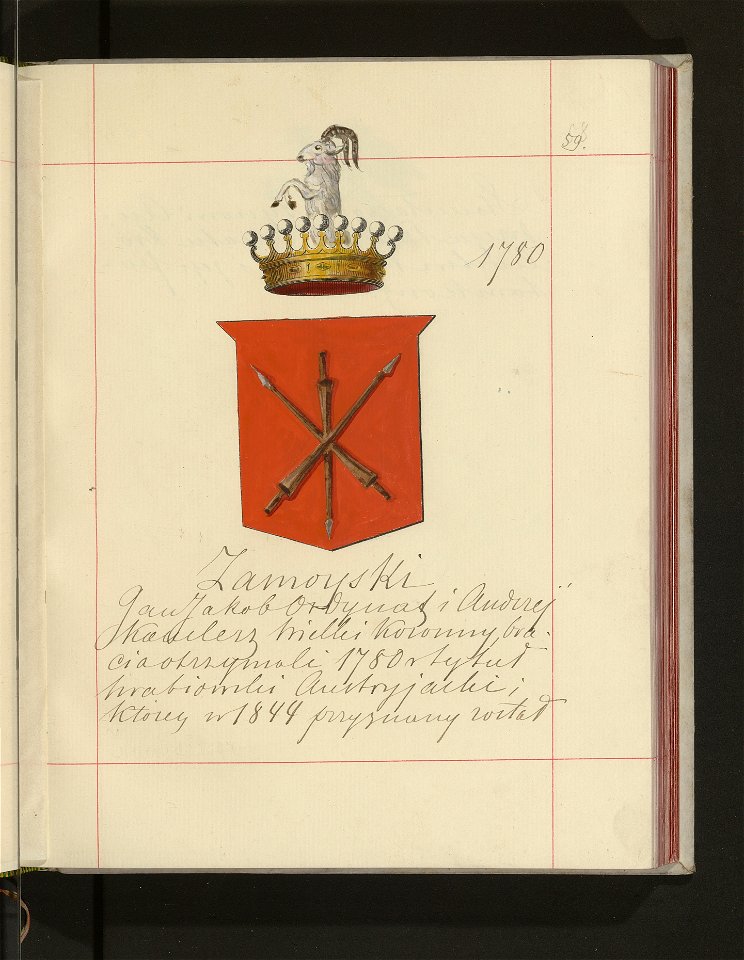 59.
1780
Zamoyski
Jan Jakob Ordynat i Andrzej
Kanclerz Wielki Koronny, bra-
cia otrzymali 1780 r tytuł
hrabiowski Austryjacki,
który w 1844 przyznany został